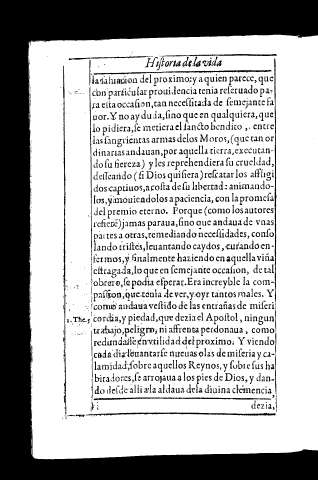 Historia de la vida
la saluacion del proximo: y a quien parece, que
con particular prouidencia tenia reseruado pa-
ra esta occasion, tan necessitada de semejante fa
uor. Y no ay duda, sino que en qualquiera, que
lo pidiera, se metiera el sancto bendito, entre
las sangrientas armas delos Moros, (que tan or
dinarias andauan, por aquella tierra, executan-
do su fiereza) y les reprehendiera su crueldad,
desseando (si Dios quisiera) rescatar los affligi
dos captiuos, a costa de su libertad: animando-
los, y mouiendolos a paciencia, con la promesa
del premio eterno. Porque (como los autores
refiere) jamas paraua, sino que andaua de vnas
partes a otras, remediando necessidades, conso
lando tristes, leuantando caydos, curando en-
fermos, y finalmente haziendo en aquella viña
estragada, lo que en semejante occasion, de tal
obrero, se podia esperar. Era increyble la com-
passion, que tenia de ver, y oyr tantos males. Y
como andaua vestido de las entrañas de miseri
1. The. 5
cordia, y piedad, que dezia el Apostol, ningun
trabajo, peligro, ni affrenta perdonaua, como
redundasse en vtilidad del proximo. Y viendo
cada dia leuantarse nueuas olas de miseria y ca-
lamidad, sobre aquellos Reynos, y sobre sus ha
bitadores, se arrojaua a los pies de Dios, y dan-
do desde alli a la aldaua de la diuina clemencia,
dezia,